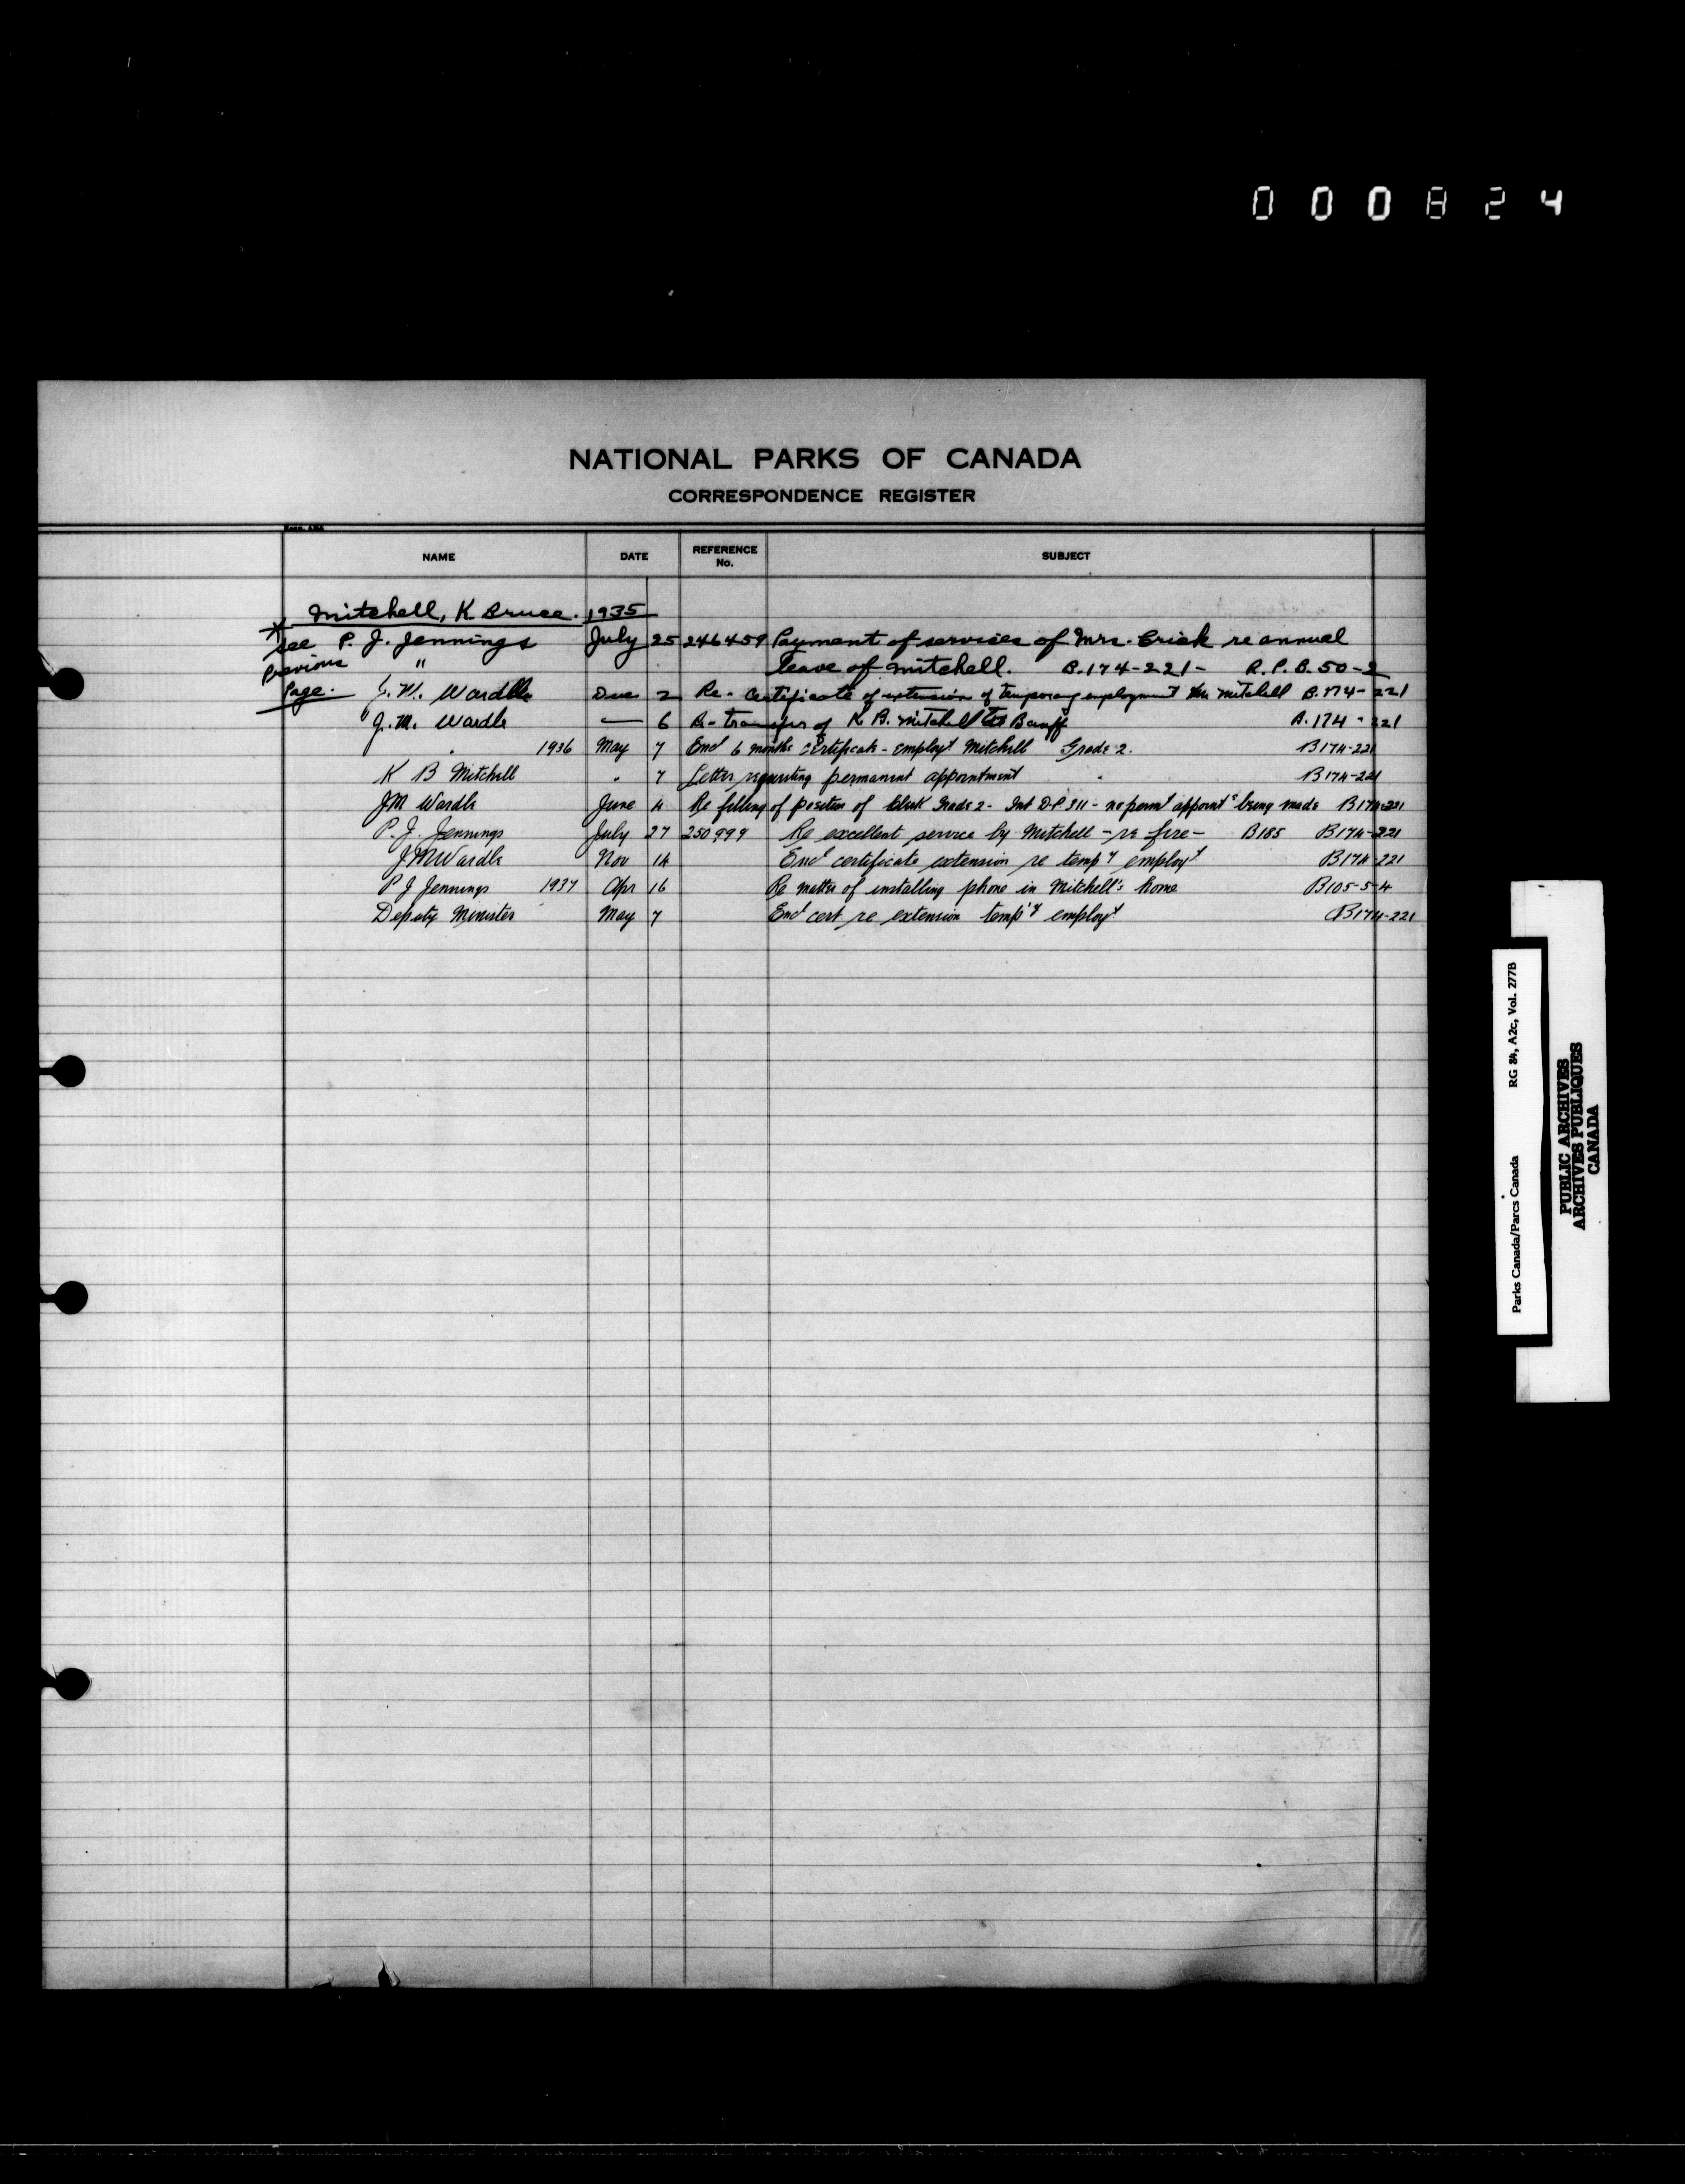 000824
NATIONAL PARKS OF CANADA
CORRESPONDENCE REGISTER
NAME DATE REFERENCE No. SUBJECT
Mitchell, K Bruce. 1935
* See previous page.
P. J. Jennings July 25 246459 Payment of services of Mrs. Crick re annual
" leave of Mitchell. B.174-221- R.P.B.50-2
J. M. Wardle 2 Re- Certificate of extension of temporary employment Mitchell B.174-221
J. M. Wardle — 6 Re- transfer of K. B. Mitchell to Banff B.174-221
" 1936 May 7 Encl 6 months certificate - employt Mitchell Grade 2. B174-221
K B Mitchell " 7 Letter requesting permanent appointment B174-221
JM Wardle June 4 Re filling of position of Clerk Grade 2- Int DP 311 - no permt appoint being made B174-221
P. J. Jennings July 27 250999 Re excellent service by Mitchell - re fire - B185 B174-221
JM Wardle Nov 14 Encl certificate extension re tempy employt B174-221
P J Jennings 1937 Apr 16 Re matter of installing phone in Mitchell's home B105-5-4
Deputy Minister May 7 Encl cert re extension temp'y employt B174-221
Parks Canada/Parcs Canada RG 84, A2c, Vol. 277B
PUBLIC ARCHIVES
ARCHIVES PUBLIQUES
CANADA